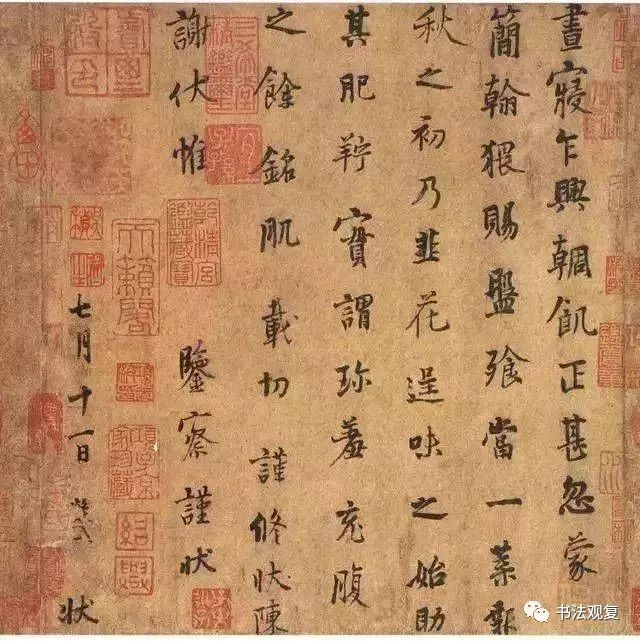 晝寢乍興輖飢正甚忽蒙
簡翰猥賜盤飧當一葉報
秋之初乃韭花逞味之始助
其肥羜實謂珍羞充腹
之餘銘肌載切謹修狀陳
謝伏惟 鑒察謹狀
七月十一日 狀
天籟閣
紹興
书法观复